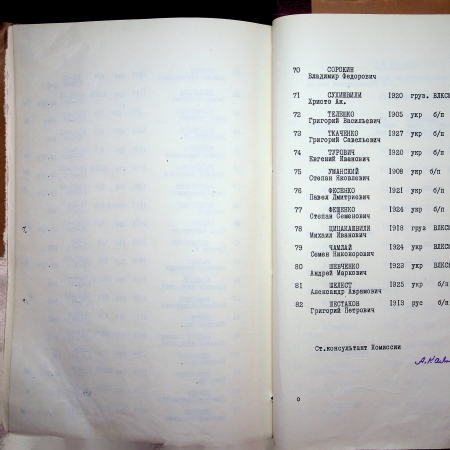 70 СОРОКИН
Владимир Федорович
71 СУХИШВИЛИ 1920 груз. ВЛКСМ
Христо Ак.
72 ТЕЛЕНКО 1905 укр б/п
Григорий Васильевич
73 ТКАЧЕНКО 1927 укр б/п
Григорий Савельевич
74 ТУРОВИЧ 1920 укр б/п
Евгений Иванович
75 УМАНСКИЙ 1908 укр б/п
Степан Яковлевич
76 ФЕСЕНКО 1921 укр б/п
Павел Дмитриевич
77 ФЕЩЕНКО 1924 укр б/п
Степан Семенович
78 ЦИЦАКАШВИЛИ 1918 груз ВЛКС
Михаил Иванович
79 ЧАМЛАЙ 1924 укр ВЛКС
Семен Никонорович
80 ШЕВЧЕНКО 1923 укр ВЛКС
Андрей Маркович
81 ШЕЛЕСТ 1925 укр б/п
Александр Абрамович
82 ШЕСТАКОВ 1913 рус б/п
Григорий Петрович
Ст.консультант Комиссии